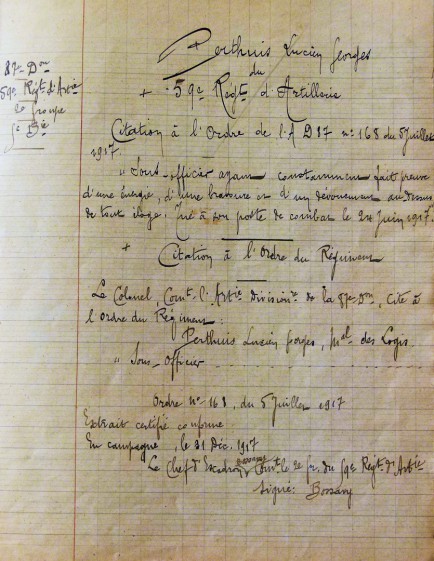 87e Don
59e Régt d'Artie
2e Groupe
5e Bie
Perthuis Lucien Georges
du
+ 59e Régt d'Artillerie
Citation à l'Ordre de l'A D 87 n° 168 du 5 Juillet
1917.
" Sous-officier ayant constamment fait preuve
d'une énergie, d'une bravoure et d'un dévouement au dessus
de tout éloge. Tué à son poste de combat le 24 Juin 1917.
+ Citation à l'Ordre du Régiment
Le Colonel, Comt l'Artie Divisionre de la 87e Don, cite à
l'Ordre du Régiment :
Perthuis Lucien Georges, Mal des Logis
" Sous-Officier
Ordre n° 168, du 5 Juillet 1917
Extrait certifié conforme
En campagne, le 31 Déc. 1917
Le Chef d'Escadron Comt le 2e gr. du 59e Régt d'Artie
Signé: